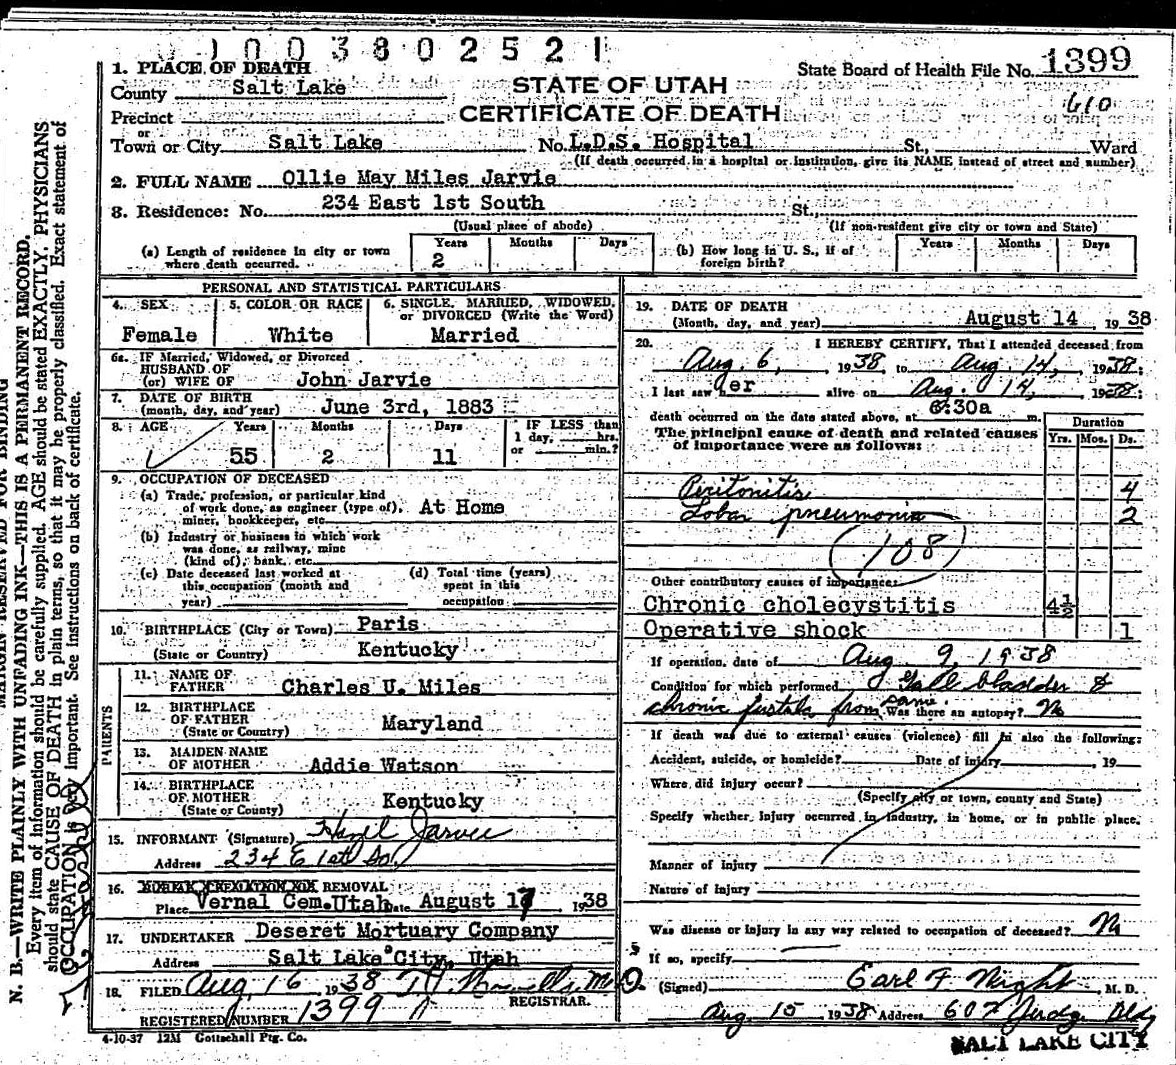 0 1 0 0 3 8 0 2 5 2 1
State Board of Health File No. 1399
610
STATE OF UTAH
CERTIFICATE OF DEATH
1. PLACE OF DEATH
County Salt Lake
Precinct
or
Town or City Salt Lake No. L.D.S. Hospital St., Ward
(If death occurred in a hospital or institution, give its NAME instead of street and number)
2. FULL NAME Ollie May Miles Jarvie
3. Residence: No. 234 East 1st South St.,
(Usual place of abode) (If non-resident give city or town and State)
(a) Length of residence in city or town where death occurred. Years 2 Months Days
(b) How long in U. S., if of foreign birth? Years Months Days
PERSONAL AND STATISTICAL PARTICULARS
4. SEX Female
5. COLOR OR RACE White
6. SINGLE, MARRIED, WIDOWED, or DIVORCED (Write the Word) Married
6a. IF Married, Widowed, or Divorced
HUSBAND OF
(or) WIFE OF John Jarvie
7. DATE OF BIRTH
(month, day, and year) June 3rd, 1883
8. AGE Years 55 Months 2 Days 11 IF LESS than 1 day, hrs. or min.?
9. OCCUPATION OF DECEASED
(a) Trade, profession, or particular kind of work done, as engineer (type of), miner, bookkeeper, etc. At Home
(b) Industry or business in which work was done, as railway, mine (kind of), bank, etc.
(c) Date deceased last worked at this occupation (month and year)
(d) Total time (years) spent in this occupation
10. BIRTHPLACE (City or Town) Paris
(State or Country) Kentucky
PARENTS
11. NAME OF FATHER Charles U. Miles
12. BIRTHPLACE OF FATHER (State or Country) Maryland
13. MAIDEN NAME OF MOTHER Addie Watson
14. BIRTHPLACE OF MOTHER (State or County) Kentucky
15. INFORMANT (Signature) Hazel Jarvie
Address 234 E 1st So.
16. BURIAL, CREMATION, OR REMOVAL
Place Vernal Cem. Utah Date August 17, 1938
17. UNDERTAKER Deseret Mortuary Company
Address Salt Lake City, Utah
18. FILED Aug 16 1938 M.D.
REGISTRAR.
REGISTERED NUMBER 1399
4-10-37 12M Gottschall Ptg. Co.
19. DATE OF DEATH
(Month, day, and year) August 14, 1938
20. I HEREBY CERTIFY, That I attended deceased from
Aug. 6, 1938, to Aug. 14, 1938;
I last saw her alive on Aug. 14, 1938;
death occurred on the date stated above, at 6:30a m.
The principal cause of death and related causes of importance were as follows:
Duration
Yrs. Mos. Ds.
Peritonitis 4
Lobar pneumonia 2
108
Other contributory causes of importance:
Chronic cholecystitis 4½
Operative shock 1
If operation, date of Aug. 9, 1938
Condition for which performed Gall bladder &
chronic fistula from same. Was there an autopsy? No
If death was due to external causes (violence) fill in also the following:
Accident, suicide, or homicide? Date of injury , 19
Where did injury occur?
(Specify city or town, county and State)
Specify whether injury occurred in industry, in home, or in public place.
Manner of injury
Nature of injury
Was disease or injury in any way related to occupation of deceased? No
If so, specify
(Signed) Earl F. Wight, M. D.
Aug. 15 1938 Address 607 Judge Bldg
SALT LAKE CITY
MARGIN RESERVED FOR BINDING
N. B.—WRITE PLAINLY WITH UNFADING INK—THIS IS A PERMANENT RECORD.
Every item of information should be carefully supplied. AGE should be stated EXACTLY. PHYSICIANS
should state CAUSE OF DEATH in plain terms, so that it may be properly classified. Exact statement of
OCCUPATION is very important. See instructions on back of certificate.